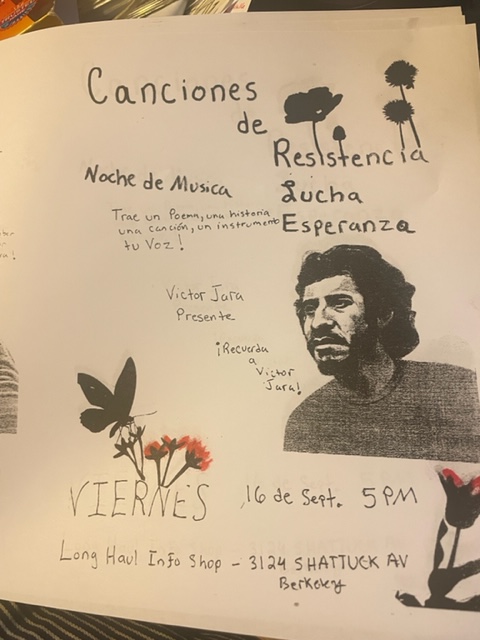 Canciones
de
Resistencia
Lucha
Esperanza
Noche de Musica
Trae un Poema, una historia
una canción, un instrumento
tu Voz!
Victor Jara
Presente
¡Recuerda
a
Victor
Jara!
VIERNES 16 de Sept. 5 PM
Long Haul Info Shop - 3124 SHATTUCK AV
Berkeley